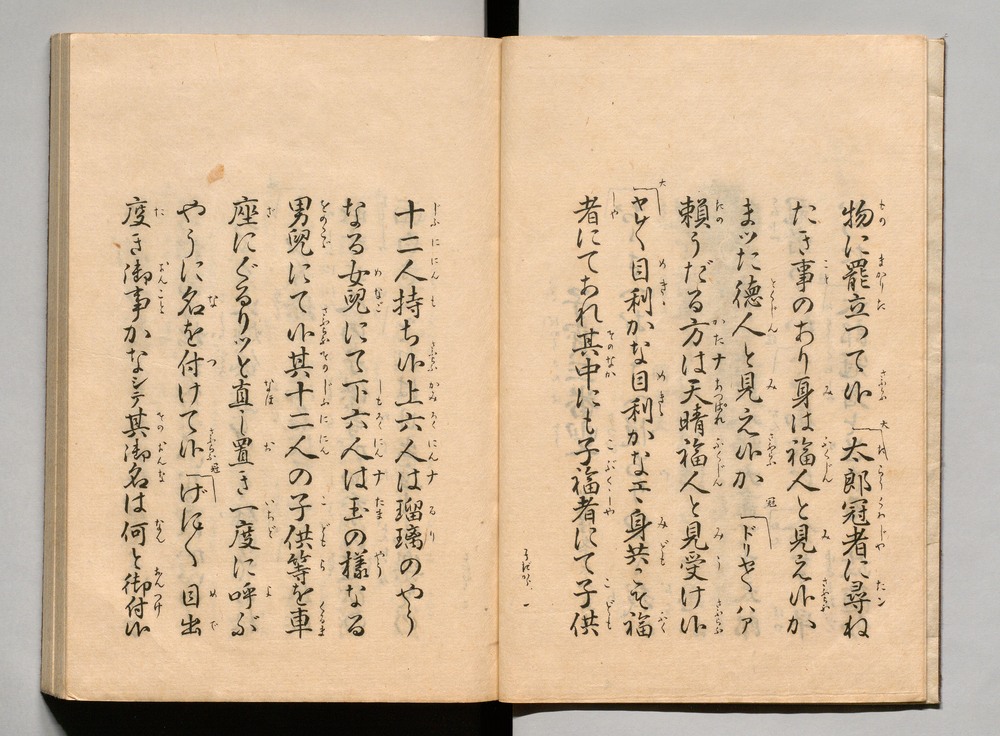 物に罷立つて候 太郎冠者に尋ね
たき事のあり身は福人と見え候か
まッた徳人と見え候か ドリヤ〱ハア
頼うだる方はナ天晴福人と見受け候
ヤレ〱目利かな目利かなエヽ身共こそ福
者にてあれ其中にも子福者にて子供
十二人持ち候上六人はナ瑠璃のやう
なる女児にて下六人はナ玉の様なる
男児にて候其十二人の子供等を車
座にぐるりッと直し置き一度に呼ぶ
やうに名を付けて候 げに〱目出
度き御事かなシテ其御名は何と御付候